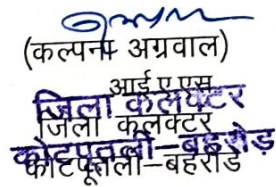 (कल्पना अग्रवाल)
आई ए एस
जिला कलक्टर
जिला कलक्टर
कोटपूतली–बहरोड़
कोटपूतली–बहरोड